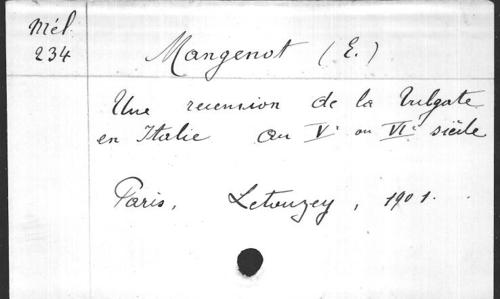 Mél.
234
Mangenot (E.)
Une recension de la Vulgate
en Italie au Ve ou VIe siècle
Paris, Letouzey, 1901.